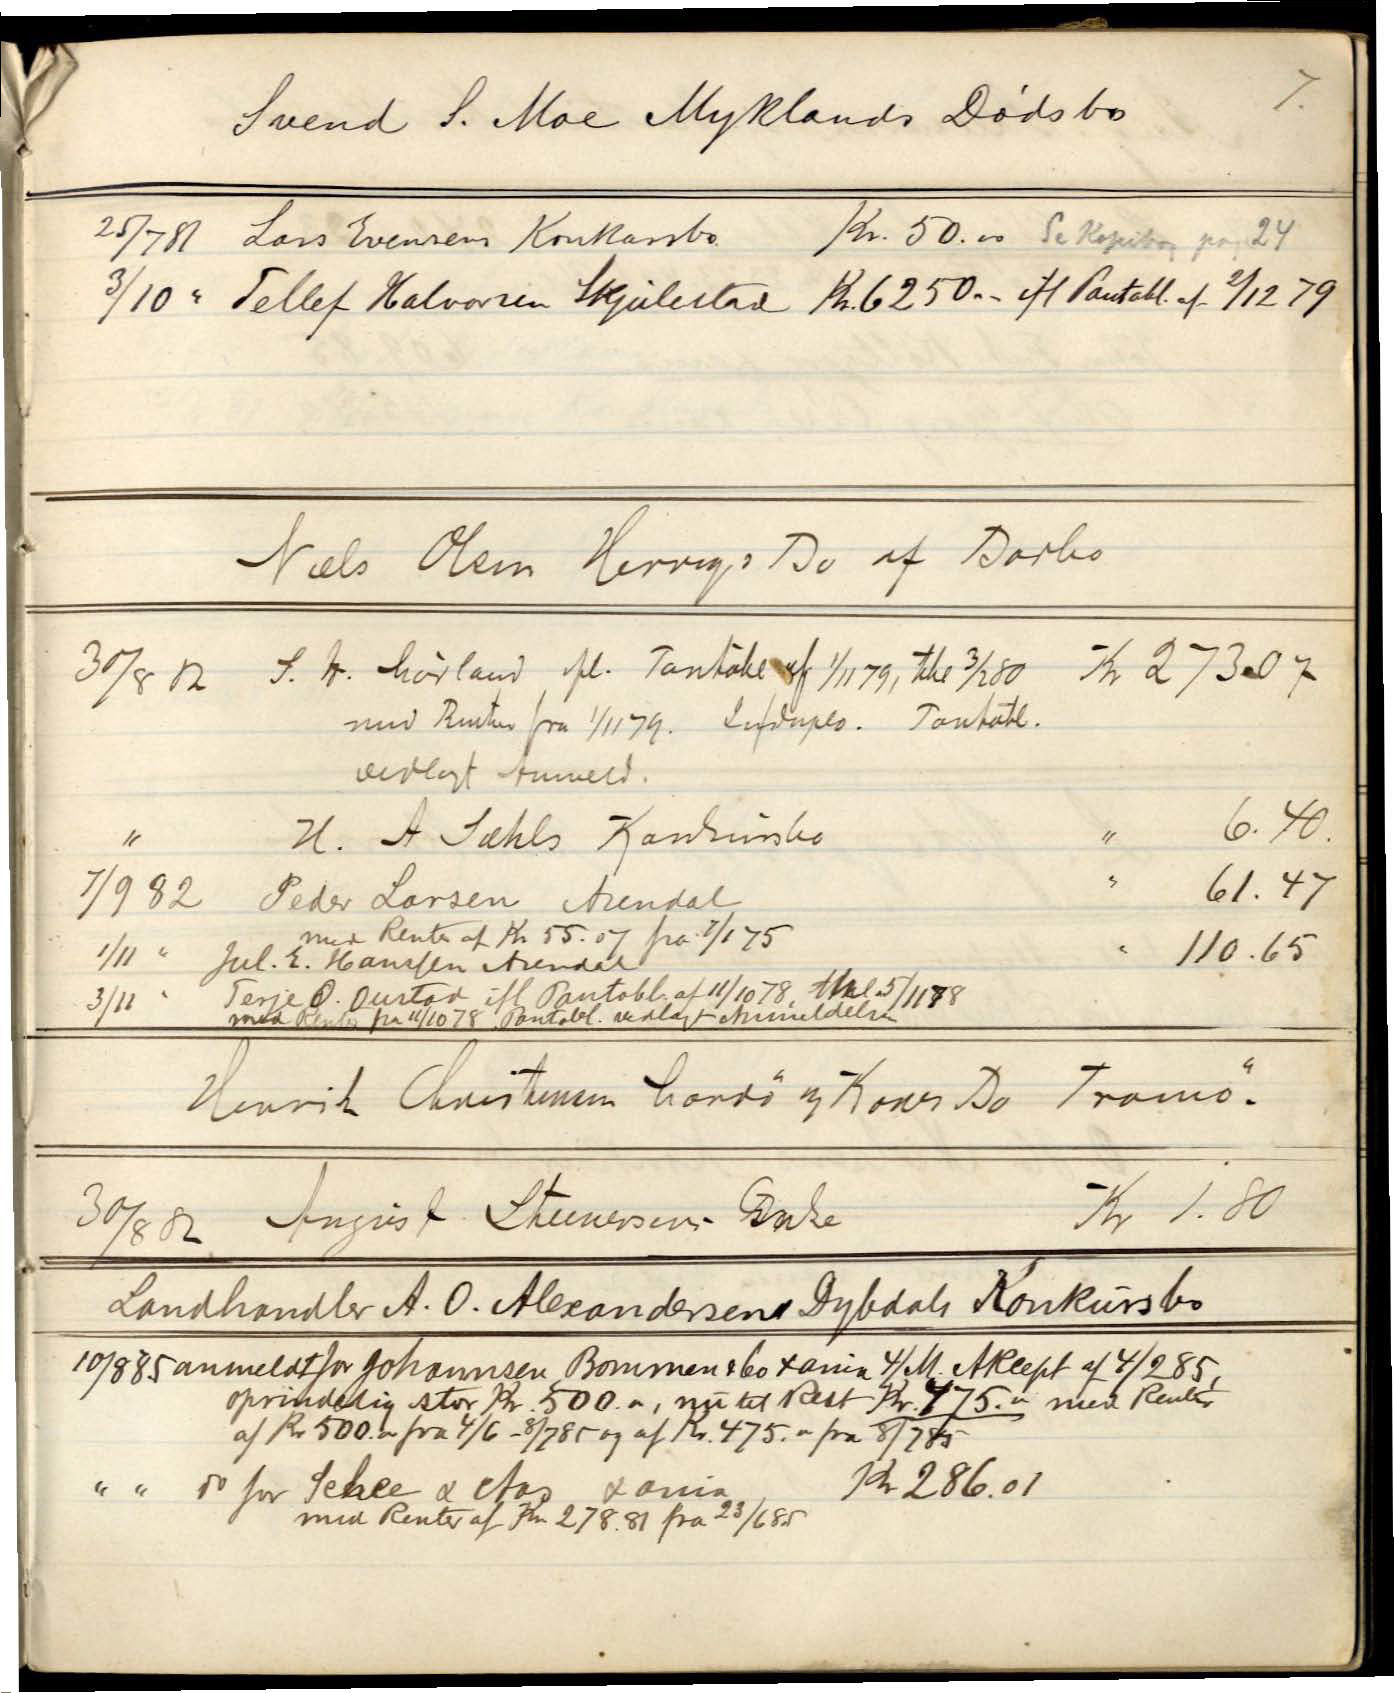 7.
Svend S. Moe Myklands Dødsbo
25/7 81 Lars Evensens Konkursbo Kr. 50.00 Se Kopibog pag 24
3/10 " Tellef Halvorsen Skjulestad Kr. 6250.– ifl Pantobl. af 2/12 79
Niels Olsen Bo af Barbo
30/8 82 S. ifl. Pantobl af 1/11 79, 3/2 80 Kr 273.07
med Renter fra 1/11 79. Pantobl.
vedlagt Anmeld.
" H. A Konkursbo " 6.40.
7/9 82 Peder Larsen Arendal " 61.47
med Renter af Kr 55.07 fra 7/1 75
1/11 " Jul. E. Hanssen Arendal " 110.65
3/11 " Terje O. Oustad ifl Pantobl. af 11/10 78, 5/11 78
med Renter fra 11/10 78. Pantobl. vedlagt Anmeldelsen
Henrik Christensen og Kones Bo Tromö.
30/8 82 August Steenersens Enke Kr 1.80
Landhandler A. O. Alexandersens Dybdals Konkursbo
10/8 85 anmeldt for Johannsen, Bommen & Co Xania 4/M. Akcept af 4/2 85,
oprindelig stor Kr. 500.", nu til Rest Kr. 475." med Renter
af Kr 500." fra 4/6 – 8/7 85 og af Kr. 475." fra 8/7 85
" " do for & Aas Xania Kr 286.01
med Renter af Kr 278.81 fra 23/6 85